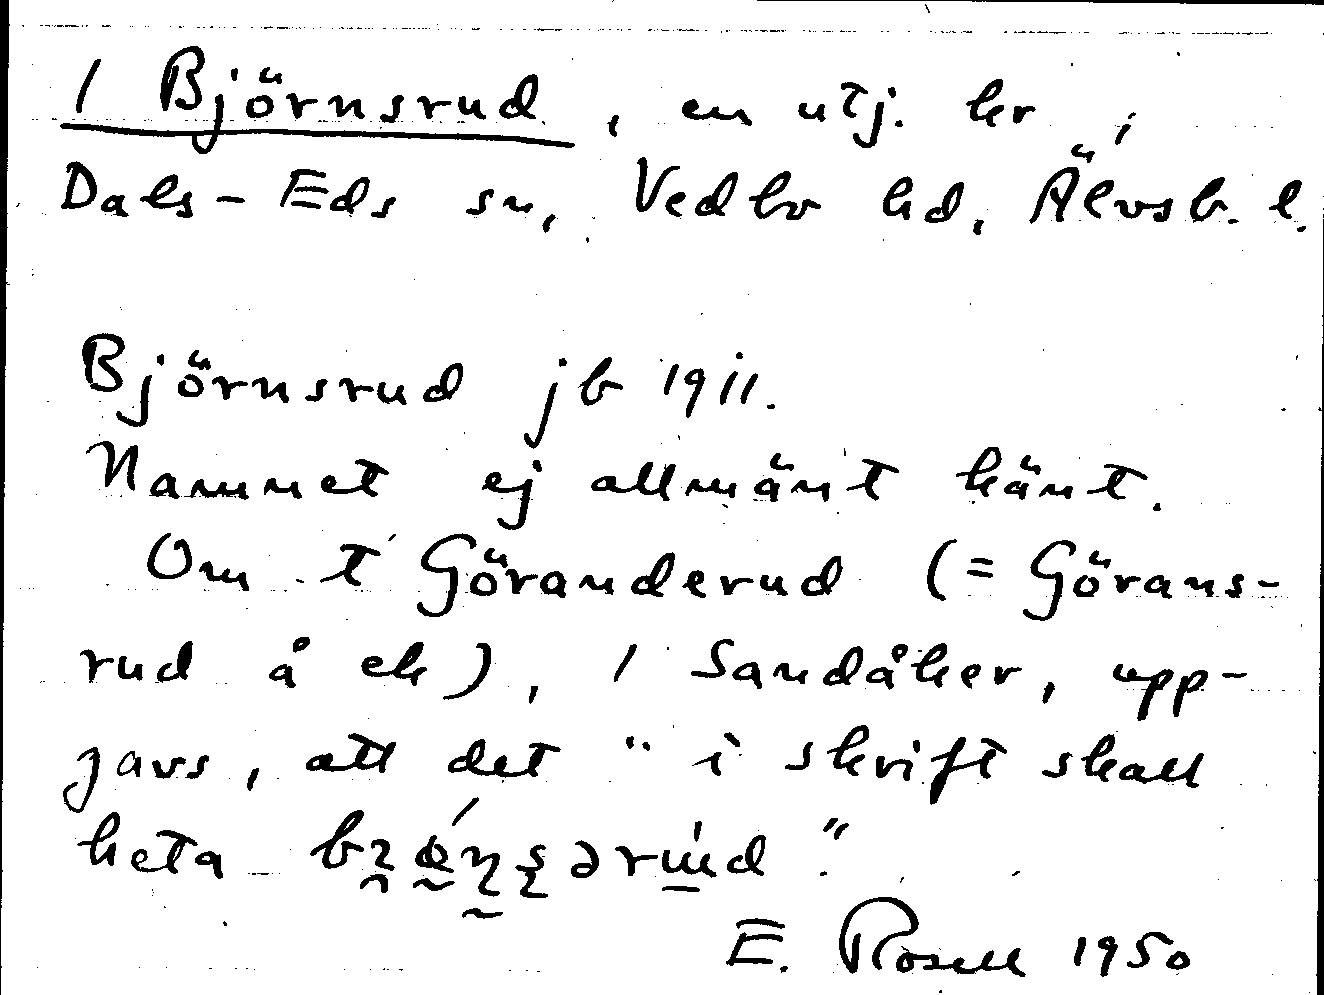 / Björnsrud, en utj. kr i
Dals-Eds sn, Vedbo hd, Älvsb. l.
Björnsrud jb 1911.
Namnet ej allmänt känt.
Om t Göranderud (= Görans-
rud å ek), / Sandåker, upp-
gavs, att det "i skrift skall
heta
E. Rosell 1950